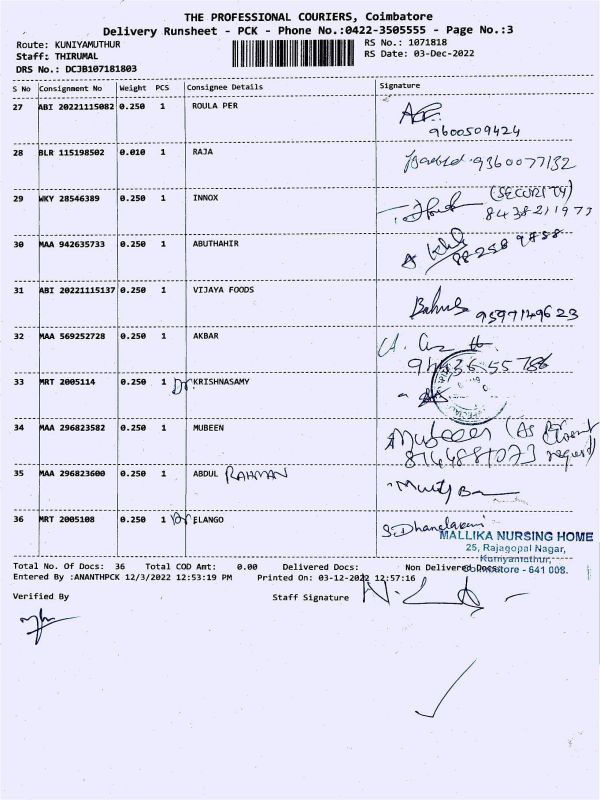 THE PROFESSIONAL COURIERS, Coimbatore
Delivery Runsheet - PCK - Phone No.:0422-3505555 - Page No.:3
Route: KUNIYAMUTHUR RS No.: 1071818
Staff: THIRUMAL RS Date: 03-Dec-2022
DRS No.: DCJB107181803
S No Consignment No Weight PCS Consignee Details Signature
27 ABI 20221115082 0.250 1 ROULA PER
9600509424
28 BLR 115198502 0.010 1 RAJA 9360077132
29 WKY 28546389 0.250 1 INNOX (SECURITY)
8438211973
30 MAA 942635733 0.250 1 ABUTHAHIR
31 ABI 20221115137 0.250 1 VIJAYA FOODS
9597149623
32 MAA 569252728 0.250 1 AKBAR
33 MRT 2005114 0.250 1 Dr. KRISHNASAMY
34 MAA 296823582 0.250 1 MUBEEN Mubeen (As Per
request)
35 MAA 296823600 0.250 1 ABDUL RAHMAN
36 MRT 2005108 0.250 1 Dr ELANGO
MALLIKA NURSING HOME
25, Rajagopal Nagar,
Kuniyamuthur,
Coimbatore - 641 008.
Total No. Of Docs: 36 Total COD Amt: 0.00 Delivered Docs: Non Delivered Docs:
Entered By :ANANTHPCK 12/3/2022 12:53:19 PM Printed On: 03-12-2022 12:57:16
Verified By Staff Signature